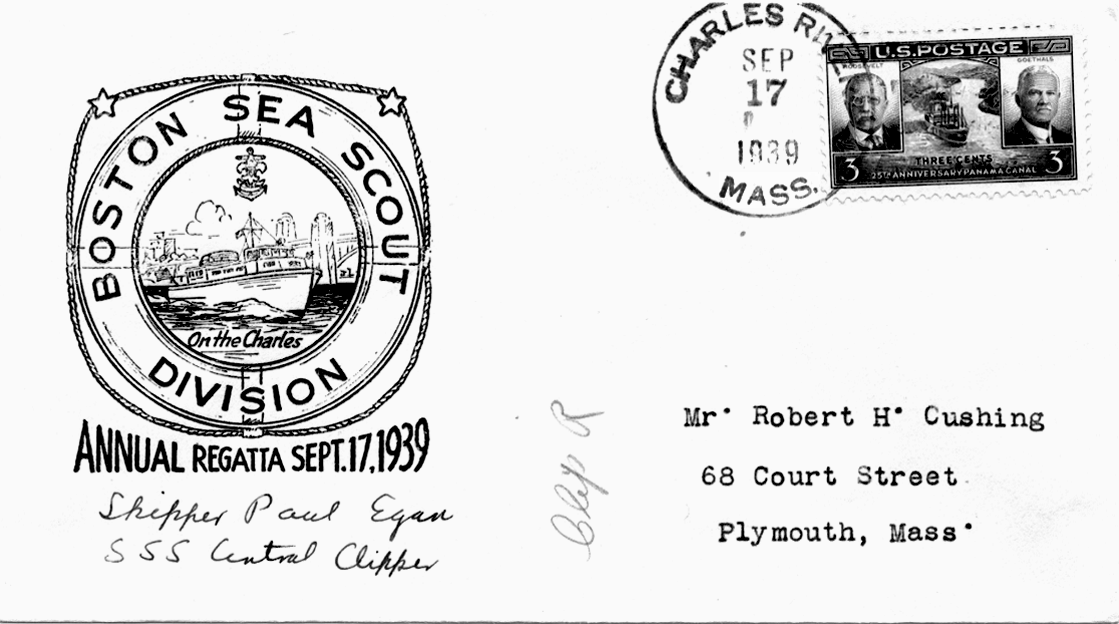 BOSTON SEA SCOUT
DIVISION
On the Charles
ANNUAL REGATTA SEPT.17,1939
Skipper Paul Egan
SSS Central Clipper
CHARLES RIV
SEP
17
1939
MASS.
U.S.POSTAGE
ROOSEVELT
GOETHALS
THREE CENTS
3 3
25TH ANNIVERSARY PANAMA CANAL
Mr. Robert H. Cushing
68 Court Street
Plymouth, Mass.